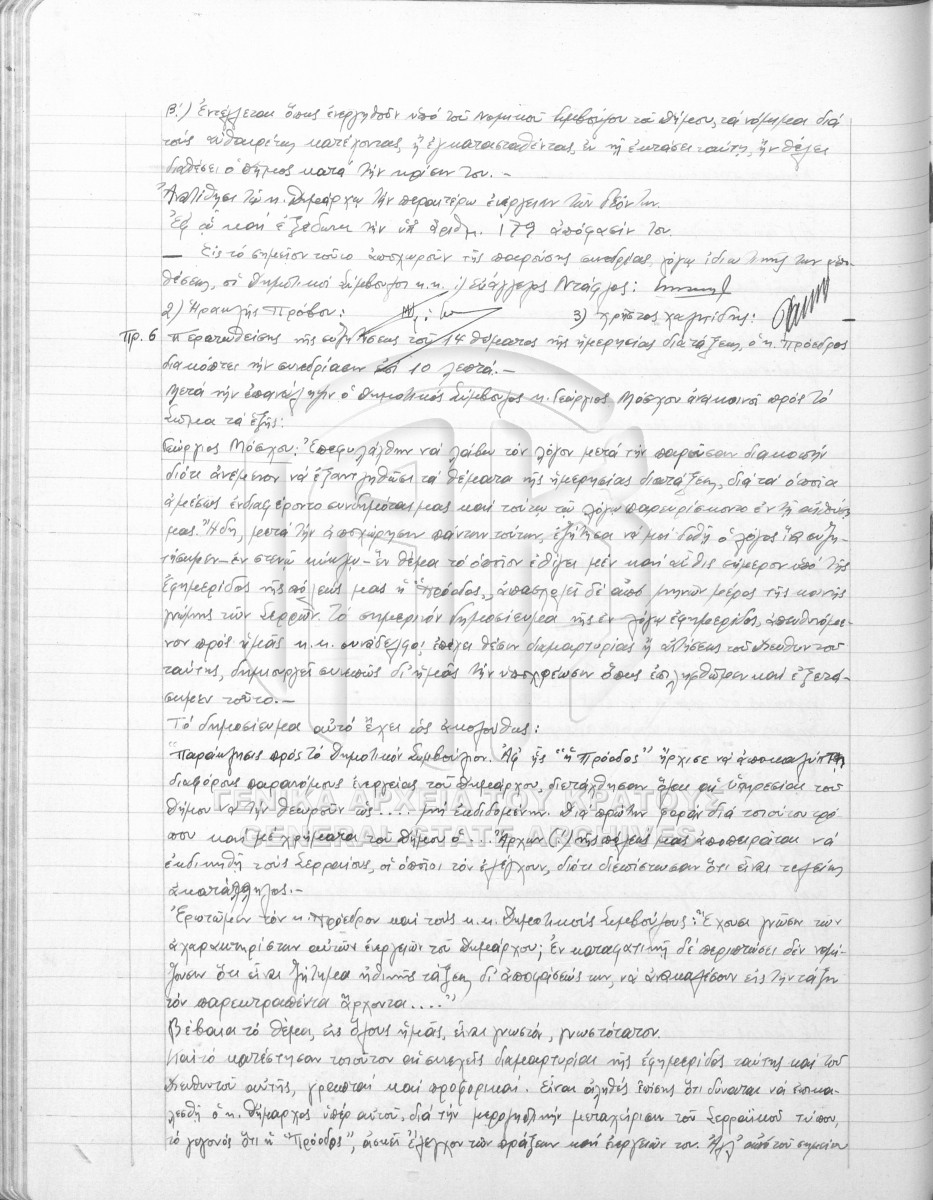 Β.) Ἐντέλλεται ὅπως ἐνεργηθοῦν ὑπό τοῦ Νομικοῦ Συμβούλου τοῦ Δήμου, τά νόμιμα διά
τούς αὐθαιρέτως κατέχοντας ἤ ἐγκατασταθέντας ἐν τῇ ἐκτάσει ταύτῃ, ἥν θέλει
διαθέσει ὁ Δῆμος κατά τήν κρίσιν του.-
Ἀνατίθησι τῷ κ. Δημάρχῳ τήν περαιτέρω ἐνέργειαν τῶν δεόντων.
Ἐφ' ᾧ καί ἐξεδώθη τήν ὑπ' ἀριθμ. 179 ἀπόφασίν του.
— Εἰς τό σημεῖον τοῦτο ἀποχωροῦν τῆς παρούσης συνεδρίας, λόγῳ ἰδιωτικῆς των ὑπο-
θέσεως, οἱ Δημοτικοί Σύμβουλοι κ.κ. 1) Εὐάγγελος Ντάφλος:
2) Ἡρακλῆς Πρόβου: 3) Χρῆστος Χαλπίδης: —
Πρ. 6 Περατωθείσης τῆς συζητήσεως τοῦ 14 θέματος τῆς ἡμερησίας διατάξεως, ὁ κ. Πρόεδρος
διακόπτει τήν συνεδρίασιν ἐπί 10 λεπτά.-
Μετά τήν ἐπανάληψιν ὁ Δημοτικός Σύμβουλος κ. Γεώργιος Μόσχου ἀνακοινοῖ πρός τό
Σῶμα τά ἑξῆς:
Γεώργιος Μόσχου: Ἐπεφυλάχθην νά λάβω τόν λόγον μετά τήν παροῦσαν διακοπήν
διότι ἀνέμενον νά ἐξαντληθῶσι τά θέματα τῆς ἡμερησίας διατάξεως, διά τά ὁποῖα
ἀμέσως ἐνδιαφέροντο συνδημόται μας καί τούτῳ τῷ λόγῳ παρευρίσκοντο ἐν τῇ αἰθούσῃ
μας. Ἤδη, μετά τήν ἀποχώρησιν πάντων τούτων, ἐζήτησα νά μοί δοθῇ ὁ λόγος ἵνα συζη-
τήσωμεν—ἐν στενῷ κύκλῳ—ἕν θέμα τό ὁποῖον ἐθίγει μέν καί αὖθις σήμερον ὑπό τῆς
ἐφημερίδος τῆς πόλεώς μας ἡ "Πρόοδος", ἀπασχολεῖ δέ ἀπό μηνῶν μέρος τῆς κοινῆς
γνώμης τῶν Σερρῶν. Τό σημερινόν δημοσίευμα τῆς ἐν λόγῳ ἐφημερίδος, ἀπευθυνόμε-
νον πρός ἡμᾶς κ.κ. συνάδελφοι, ἐπέχει θέσιν διαμαρτυρίας ἤ αἰτήσεως τοῦ Διευθυντοῦ
ταύτης, δημιουργεῖ συνεπῶς δι' ἡμᾶς τήν ὑποχρέωσιν ὅπως ἐπιληφθῶμεν καί ἐξετά-
σωμεν τοῦτο.-
Τό δημοσίευμα αὐτό ἔχει ὡς ἀκολούθως:
"Παράκλησις πρός τό Δημοτικόν Συμβούλιον. Ἀφ' ἧς "ἡ Πρόοδος" ἤρχισε νά ἀποκαλύπτῃ
διαφόρους παρανόμους ἐνεργείας τοῦ Δημάρχου, διετάχθησαν ὅλαι αἱ ὑπηρεσίαι τοῦ
Δήμου νά τήν θεωροῦν ὡς .... μή ἐκδιδομένην. Διά πρώτην φοράν διά τοιούτου τρό-
που καί μέ χρήματα τοῦ Δήμου ὁ... Ἄρχων (!) τῆς πόλεώς μας ἀποπειρᾶται νά
ἐκδικηθῇ τούς Σερραίους, οἱ ὁποῖοι τόν ἐλέγχουν, διότι διεπίστωσαν ὅτι εἶναι τελείως
ἀκατάλληλος.-
Ἐρωτῶμεν τόν κ. Πρόεδρον καί τούς κ.κ. Δημοτικούς Συμβούλους: Ἔχουσι γνῶσιν τῶν
ἀχαρακτηρίστων αὐτῶν ἐνεργειῶν τοῦ Δημάρχου; Ἐν καταφατικῇ δέ περιπτώσει δέν νομί-
ζουσιν ὅτι εἶναι ζήτημα ἠθικῆς τάξεως δι' ἀποφάσεώς των, νά ἀνακαλέσουν εἰς τήν τάξιν
τόν παρεκτραπέντα ἄρχοντα...."
Βέβαια τό θέμα, εἰς ὅλους ἡμᾶς, εἶναι γνωστόν, γνωστότατον.
Καί τό κατέστησαν τοιοῦτον αἱ συνεχεῖς διαμαρτυρίαι τῆς ἐφημερίδος ταύτης καί τοῦ
Διευθυντοῦ αὐτῆς, γραπταί καί προφορικαί. Εἶναι ἀληθές ἐπίσης ὅτι δύναται νά ἐπικα-
λεσθῇ ὁ κ. Δήμαρχος ὑπέρ αὐτοῦ, διά τήν μεροληπτικήν μεταχείρισιν τοῦ Σερραϊκοῦ τύπου,
τό γεγονός ὅτι ἡ "Πρόοδος", ἀσκεῖ ἔλεγχον τῶν πράξεων καί ἐνεργειῶν του. Ἀλλ' ἀπό τοῦ σημείου
ΓΕΝΙΚΑ ΑΡΧΕΙΑ ΤΟΥ ΚΡΑΤΟΥΣ
GENERAL STATE ARCHIVES